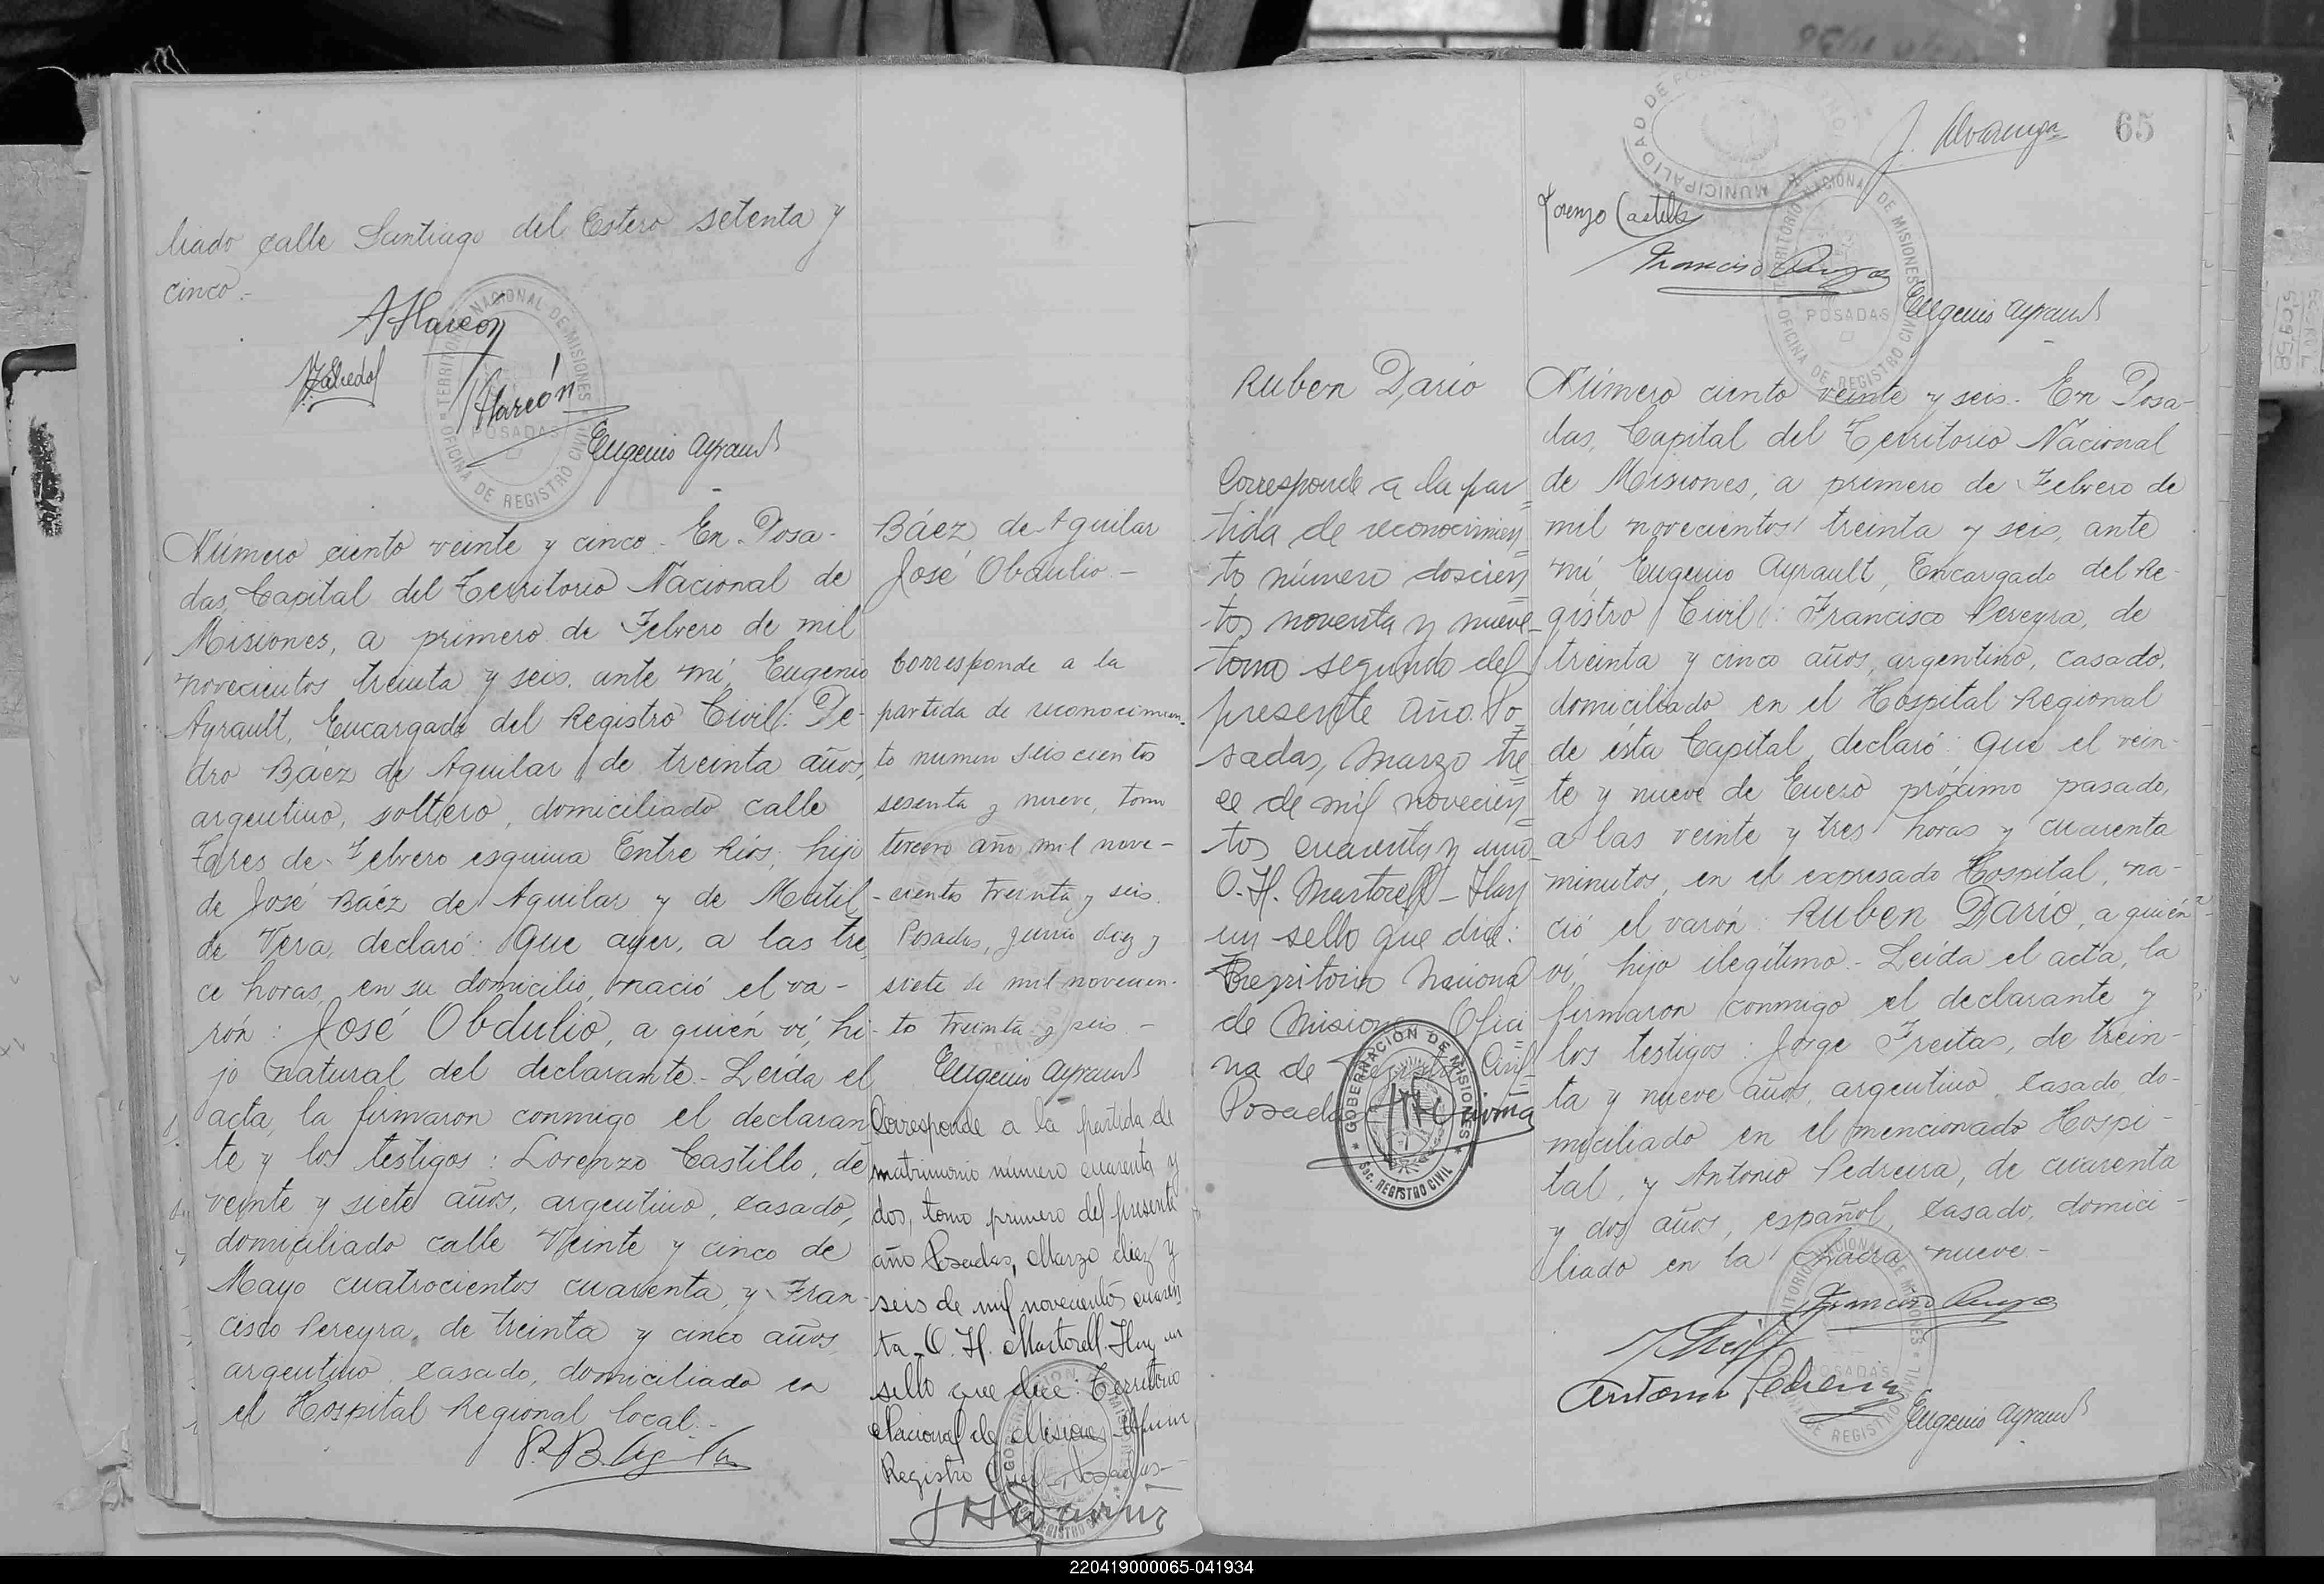 liado calle Santiago del Estero setenta y
cinco.-
Eugenio Ayrault
TERRITORIO NACIONAL DE MISIONES
POSADAS
OFICINA DE REGISTRO CIVIL
Número ciento veinte y cinco - En Posa-
das, Capital del Territorio Nacional de
Misiones, a primero de Febrero de mil
novecientos treinta y seis, ante mí, Eugenio
Ayrault, Encargado del Registro Civil: Pe-
dro Báez de Aguilar, de treinta años,
argentino, soltero, domiciliado calle
Tres de Febrero esquina Entre Ríos; hijo
de José Báez de Aguilar y de Matil
de Vera, declaró: Que ayer, a las tre
ce horas, en su domicilio, nació el va-
rón: José Obdulio, a quién ví, hi-
jo natural del declarante.- Leída el
acta, la firmaron conmigo el declaran
te y los testigos: Lorenzo Castillo, de
veinte y siete años, argentino, casado,
domiciliado calle Veinte y cinco de
Mayo cuatrocientos cuarenta, y Fran-
cisco Pereyra, de treinta y cinco años
argentino, casado, domiciliado en
el Hospital Regional local.-
Báez de Aguilar
José Obdulio -
Corresponde a la
partida de reconocimien-
to numero seiscientos
sesenta y nueve, tomo
tercero año mil nove-
cientos treinta y seis.
Posadas, junio diez y
siete de mil novecien-
to treinta y seis -
Eugenio Ayrault
Corresponde a la partida de
matrimonio número cuarenta y
dos, tomo primero del presente
año Posadas, Marzo diez y
seis de mil novecientos cuaren
ta - O. H. Martorell. Hay un
sello que dice: Territorio
Nacional de Misiones - Oficina
Registro Civil - Posadas -
65
J. Alvarenga
MUNICIPALIDAD DE POSADAS
Lorenzo Castillo
Francisco Pereyra
TERRITORIO NACIONAL DE MISIONES
POSADAS
OFICINA DE REGISTRO CIVIL
Eugenio Ayrault
Ruben Dario
Corresponde a la par
tida de reconocimien
to número doscien
tos noventa y nueve
tomo segundo del
presente año. Po
sadas, Marzo tre
ce de mil novecien
tos cuarenta y uno
O. H. Martorell - Hay
un sello que dice:
Territorio Nacional
de Misiones Ofici
na de Registro Civil
Posadas
GOBERNACION DE MISIONES
Soc. REGISTRO CIVIL
Número ciento veinte y seis - En Posa-
das, Capital del Territorio Nacional
de Misiones, a primero de Febrero de
mil novecientos treinta y seis, ante
mí, Eugenio Ayrault, Encargado del Re-
gistro Civil: Francisco Pereyra, de
treinta y cinco años, argentino, casado,
domiciliado en el Hospital Regional
de ésta Capital, declaró: Que el vein-
te y nueve de Enero próximo pasado,
a las veinte y tres horas y cuarenta
minutos, en el expresado Hospital, na-
ció el varón: Ruben Dario, a quién
ví, hijo ilegítimo - Leída el acta, la
firmaron conmigo el declarante y
los testigos: Jorge Freitas, de trein-
ta y nueve años, argentino, casado, do-
miciliado en el mencionado Hospi
tal, y Antonio Pedreira, de cuarenta
y dos años, español, casado, domici-
liado en la chacra nueve -
Francisco Pereyra
Antonio Pedreira
Eugenio Ayrault
220419000065-041934